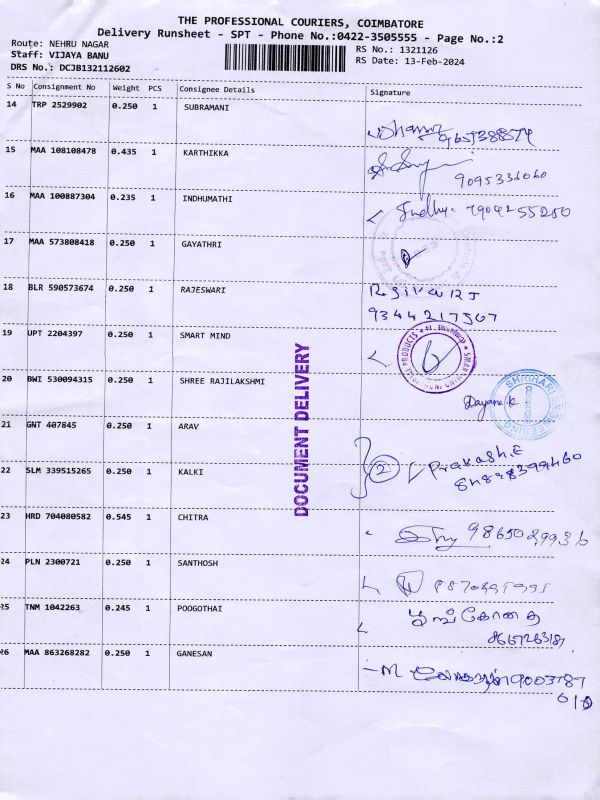 THE PROFESSIONAL COURIERS, COIMBATORE
Delivery Runsheet - SPT - Phone No.:0422-3505555 - Page No.:2
Route: NEHRU NAGAR
RS No.: 1321126
Staff: VIJAYA BANU
RS Date: 13-Feb-2024
DRS No.: DCJB132112602
S No Consignment No Weight PCS Consignee Details Signature
14 TRP 2529902 0.250 1 SUBRAMANI
15 MAA 108108478 0.435 1 KARTHIKKA
9095336060
16 MAA 100887304 0.235 1 INDHUMATHI
7904255250
17 MAA 573808418 0.250 1 GAYATHRI
18 BLR 590573674 0.250 1 RAJESWARI
9344217567
19 UPT 2204397 0.250 1 SMART MIND
DOCUMENT DELIVERY
20 BWI 530094315 0.250 1 SHREE RAJILAKSHMI
Dayana.K
21 GNT 407845 0.250 1 ARAV
22 SLM 339515265 0.250 1 KALKI
2 Prakash.E
23 HRD 704080582 0.545 1 CHITRA
24 PLN 2300721 0.250 1 SANTHOSH
25 TNM 1042263 0.245 1 POOGOTHAI
பூங்கோதை
26 MAA 863268282 0.250 1 GANESAN